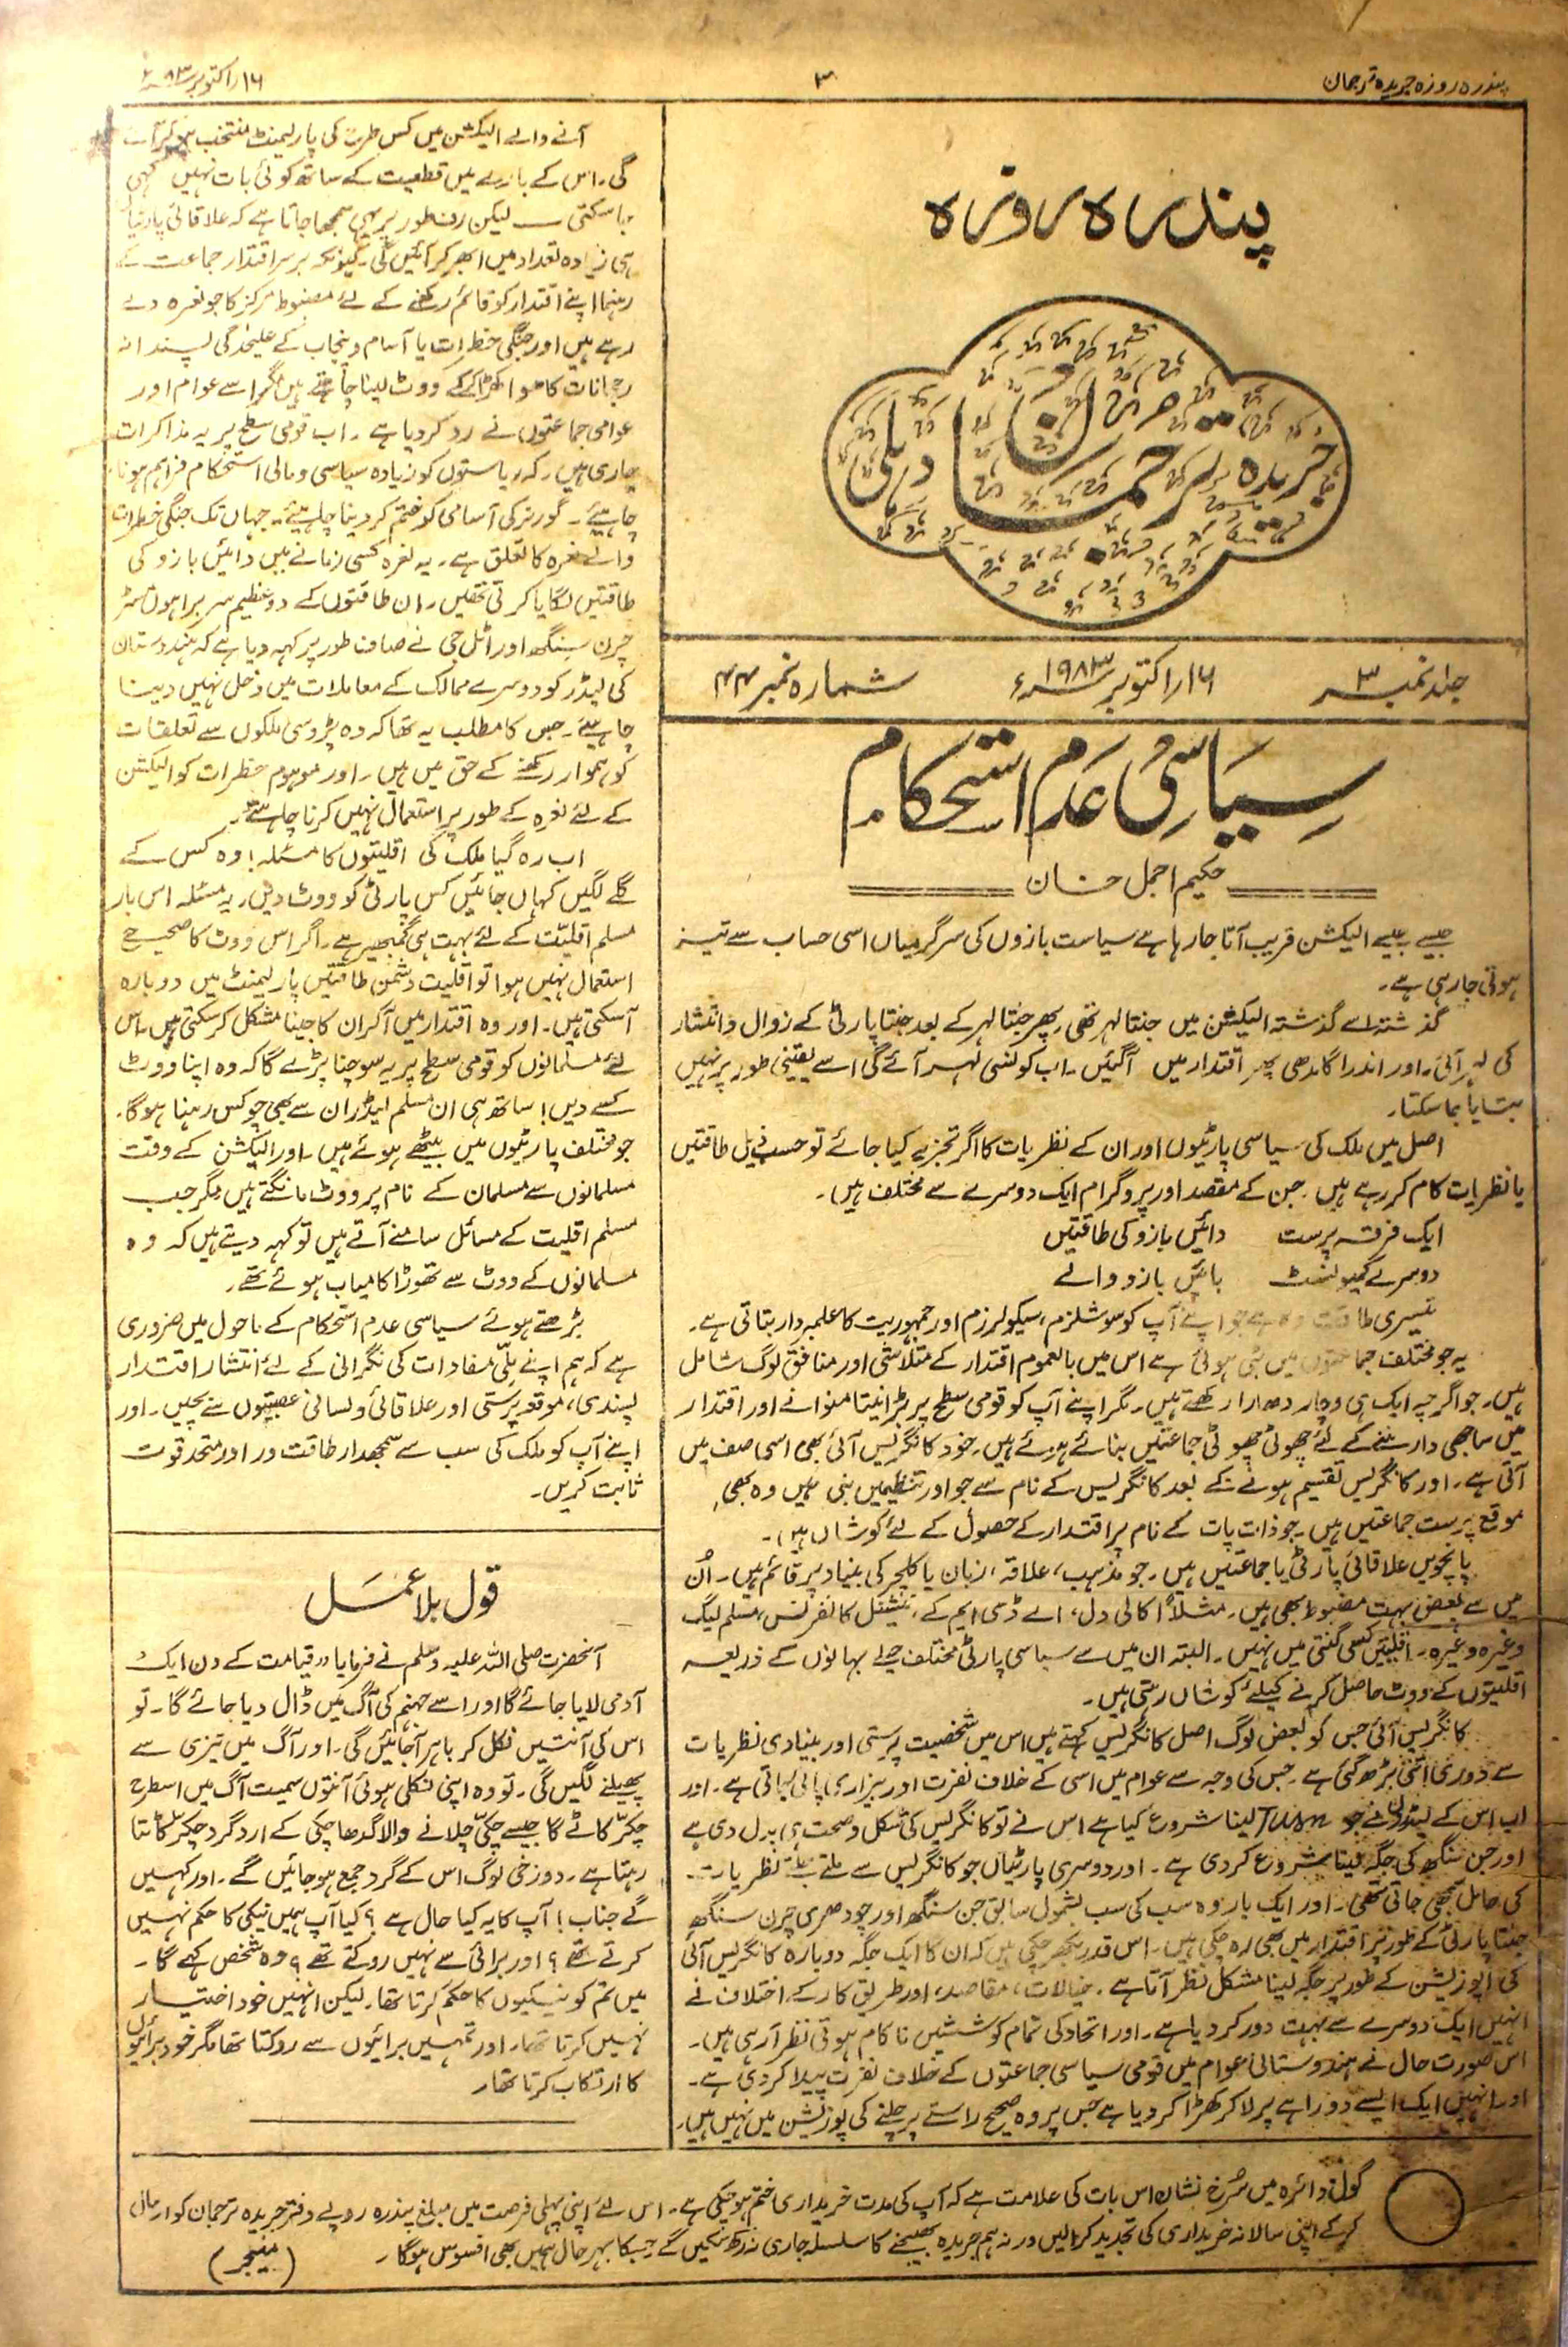 پندرہ روزہ جریدہ ترجمان
۳
۱۶ / اکتوبر ۸۳ء
پندرہ روزہ
جریدہ ترجمان دہلی
جلد نمبر ۳
۱۶ / اکتوبر ۱۹۸۳ء
شمارہ نمبر ۴۴
سیاسی عدم استحکام
حکیم اجمل خان
جیسے جیسے الیکشن قریب آتا جا رہا ہے سیاست بازوں کی سرگرمیاں اسی حساب سے تیز
ہوتی جا رہی ہے۔
گذشتہ سے گذشتہ الیکشن میں جنتا لہر تھی پھر جنتا لہر کے بعد جنتا پارٹی کے زوال و انتشار
کی لہر آئی۔ اور اندرا گاندھی پھر اقتدار میں آگئیں۔ اب کونسی لہر آئے گی اسے یقینی طور پر نہیں
بتایا جا سکتا۔
اصل میں ملک کی سیاسی پارٹیوں اور ان کے نظریات کا اگر تجزیہ کیا جائے تو حسب ذیل طاقتیں
یا نظریات کام کر رہے ہیں۔ جن کے مقصد اور پروگرام ایک دوسرے سے مختلف ہیں۔
ایک فرقہ پرست دائیں بازو کی طاقتیں
دوسرے کمیونسٹ بائیں بازو والے
تیسری طاقت وہ ہے جو اپنے آپ کو سوشلزم، سیکولرزم اور جمہوریت کا علمبردار بتاتی ہے۔
یہ جو مختلف جماعتوں میں بٹی ہوئی ہے اس میں بالعموم اقتدار کے متلاشی اور منافق لوگ شامل
ہیں۔ جو اگرچہ ایک ہی وچار دھارا رکھتے ہیں۔ مگر اپنے آپ کو قومی سطح پر بڑا نیتا منوانے اور اقتدار
میں ساجھی دار بننے کے لئے چھوٹی چھوٹی جماعتیں بنائے ہوئے ہیں۔ خود کانگریس آئی بھی اسی صف میں
آتی ہے۔ اور کانگریس تقسیم ہونے کے بعد کانگریس کے نام سے جو اور تنظیمیں بنی ہیں وہ بھی
موقع پرست جماعتیں ہیں۔ جو ذات پات کے نام پر اقتدار کے حصول کے لئے کوشاں ہیں۔
پانچویں علاقائی پارٹی یا جماعتیں ہیں۔ جو مذہب، علاقہ، زبان یا کلچر کی بنیاد پر قائم ہیں۔ اُن
میں سے بعض بہت مضبوط بھی ہیں۔ مثلاً اکالی دل، اے ڈی ایم کے، نیشنل کانفرنس، مسلم لیگ
وغیرہ وغیرہ۔ اقلیتیں کسی گنتی میں نہیں۔ البتہ ان میں سے سیاسی پارٹی مختلف حیلے بہانوں کے ذریعہ
اقلیتوں کے ووٹ حاصل کرنے کیلئے کوشاں رہتی ہیں۔
کانگریس آئی جس کو بعض لوگ اصل کانگریس کہتے ہیں اس میں شخصیت پرستی اور بنیادی نظریات
سے دوری اتنی بڑھ گئی ہے۔ جس کی وجہ سے عوام میں اسی کے خلاف نفرت اور بیزاری پائی جاتی ہے۔ اور
اب اس کے لیڈروں نے جو Turn لینا شروع کیا ہے اس نے تو کانگریس کی شکل و صحت ہی بدل دی ہے
اور جن سنگھ کی جگہ لینا شروع کر دی ہے۔ اور دوسری پارٹیاں جو کانگریس سے ملتے جلتے نظریات۔
کی حامل سمجھی جاتی تھی۔ اور ایک بار وہ سب کی سب بشمول سابق جن سنگھ اور چودھری چرن سنگھ
جنتا پارٹی کے طور پر اقتدار میں بھی رہ چکی ہیں۔ اس قدر بکھر چکی ہیں کہ ان کا ایک جگہ دوبارہ کانگریس آئی
کی اپوزیشن کے طور پر جگہ لینا مشکل نظر آتا ہے۔ خیالات، مقاصد، اور طریق کار کے اختلاف نے
انہیں ایک دوسرے سے بہت دور کر دیا ہے۔ اور اتحاد کی تمام کوششیں ناکام ہوتی نظر آ رہی ہیں۔
اس صورت حال نے ہندوستانی عوام میں قومی سیاسی جماعتوں کے خلاف نفرت پیدا کر دی ہے۔
اور انہیں ایک ایسے دوراہے پر لا کر کھڑا کر دیا ہے جس پر وہ صحیح راستے پر چلنے کی پوزیشن میں نہیں ہیں۔
آنے والے الیکشن میں کس طرح کی پارلیمنٹ منتخب ہو کر آئے
گی۔ اس کے بارے میں قطعیت کے ساتھ کوئی بات نہیں کہی
جا سکتی — لیکن طور پر یہی سمجھا جاتا ہے کہ علاقائی پارٹیاں
ہی زیادہ تعداد میں ابھر کر آئیں گی۔ کیونکہ برسر اقتدار جماعت کے
رہنما اپنے اقتدار کو قائم رکھنے کے لئے مضبوط مرکز کا جو نعرہ دے
رہے ہیں اور جنگی خطرات یا آسام و پنجاب کے علیحدگی پسندانہ
رجحانات کا ہوا کھڑا کر کے ووٹ لینا چاہتے ہیں مگر اسے عوام اور
عوامی جماعتوں نے رد کر دیا ہے۔ اب قومی سطح پر یہ مذاکرات
جاری ہیں۔ کہ ریاستوں کو زیادہ سیاسی و مالی استحکام فراہم ہونا
چاہیئے۔ گورنر کی آسامی کو ختم کر دینا چاہیئے۔ جہاں تک جنگی خطرات
والے نعرہ کا تعلق ہے۔ یہ نعرہ کسی زمانے میں دائیں بازو کی
طاقتیں لگایا کرتی تھیں۔ ان طاقتوں کے دو عظیم سربراہوں مسٹر
چرن سنگھ اور اٹل جی نے صاف طور پر کہہ دیا ہے کہ ہندوستان
کی لیڈر کو دوسرے ممالک کے معاملات میں دخل نہیں دینا
چاہیئے۔ جس کا مطلب یہ تھا کہ وہ پڑوسی ملکوں سے تعلقات
کو ہموار رکھنے کے حق میں ہیں۔ اور موہوم خطرات کو الیکشن
کے لئے نعرہ کے طور پر استعمال نہیں کرنا چاہتے۔
اب رہ گیا ملک کی اقلیتوں کا مسئلہ! وہ کس کے
گلے لگیں کہاں جائیں کس پارٹی کو ووٹ دیں۔ یہ مسئلہ اس بار
مسلم اقلیت کے لئے بہت ہی گمبھیر ہے۔ اگر اس ووٹ کا صحیح
استعمال نہیں ہوا تو اقلیت دشمن طاقتیں پارلیمنٹ میں دوبارہ
آ سکتی ہیں۔ اور وہ اقتدار میں آکر ان کا جینا مشکل کر سکتی ہیں۔ اس
لئے مسلمانوں کو قومی سطح پر یہ سوچنا پڑے گا کہ وہ اپنا ووٹ
کسے دیں! ساتھ ہی ان مسلم لیڈران سے بھی چوکس رہنا ہوگا۔
جو مختلف پارٹیوں میں بیٹھے ہوئے ہیں۔ اور الیکشن کے وقت
مسلمانوں سے مسلمان کے نام پر ووٹ مانگتے ہیں مگر جب
مسلم اقلیت کے مسائل سامنے آتے ہیں تو کہہ دیتے ہیں کہ وہ
مسلمانوں کے ووٹ سے تھوڑا کامیاب ہوئے تھے۔
بڑھتے ہوئے سیاسی عدم استحکام کے ماحول میں ضروری
ہے کہ ہم اپنے ملّی مفادات کی نگرانی کے لئے انتشار اقتدار
پسندی، موقع پرستی اور علاقائی و لسانی عصبیتوں سے بچیں۔ اور
اپنے آپ کو ملک کی سب سے سمجھدار طاقت ور اور متحد قوت
ثابت کریں۔
قول بلا عمل
آنحضرت صلی اللہ علیہ وسلم نے فرمایا، قیامت کے دن ایک
آدمی لایا جائے گا اور اسے جہنم کی آگ میں ڈال دیا جائے گا۔ تو
اس کی آنتیں نکل کر باہر آجائیں گی۔ اور آگ میں تیزی سے
پھیلنے لگیں گی۔ تو وہ اپنی نکلی ہوئی آنتوں سمیت آگ میں اسطرح
چکّر کاٹے گا جیسے چکّی چلانے والا گدھا چکی کے ارد گرد چکّر کاٹتا
رہتا ہے۔ دوزخی لوگ اس کے گرد جمع ہو جائیں گے۔ اور کہیں
گے جناب! آپ کا یہ کیا حال ہے؟ کیا آپ ہمیں نیکی کا حکم نہیں
کرتے تھے؟ اور برائی سے نہیں روکتے تھے؟ وہ شخص کہے گا۔
میں تم کو نیکیوں کا حکم کرتا تھا۔ لیکن انہیں خود اختیار
نہیں کرتا تھا۔ اور تمہیں برائیوں سے روکتا تھا مگر خود برائیوں
کا ارتکاب کرتا تھا۔
گول دائرہ میں سُرخ نشان اس بات کی علامت ہے کہ آپ کی مدت خریداری ختم ہو چکی ہے۔ اس لئے اپنی پہلی فرصت میں مبلغ پندرہ روپے دفتر جریدہ ترجمان کو ارسال
کر کے اپنی سالانہ خریداری کی تجدید کرالیں ورنہ ہم جریدہ بھیجنے کا سلسلہ جاری نہ رکھ سکیں گے جسکا بہر حال ہمیں بھی افسوس ہوگا۔
(منیجر)